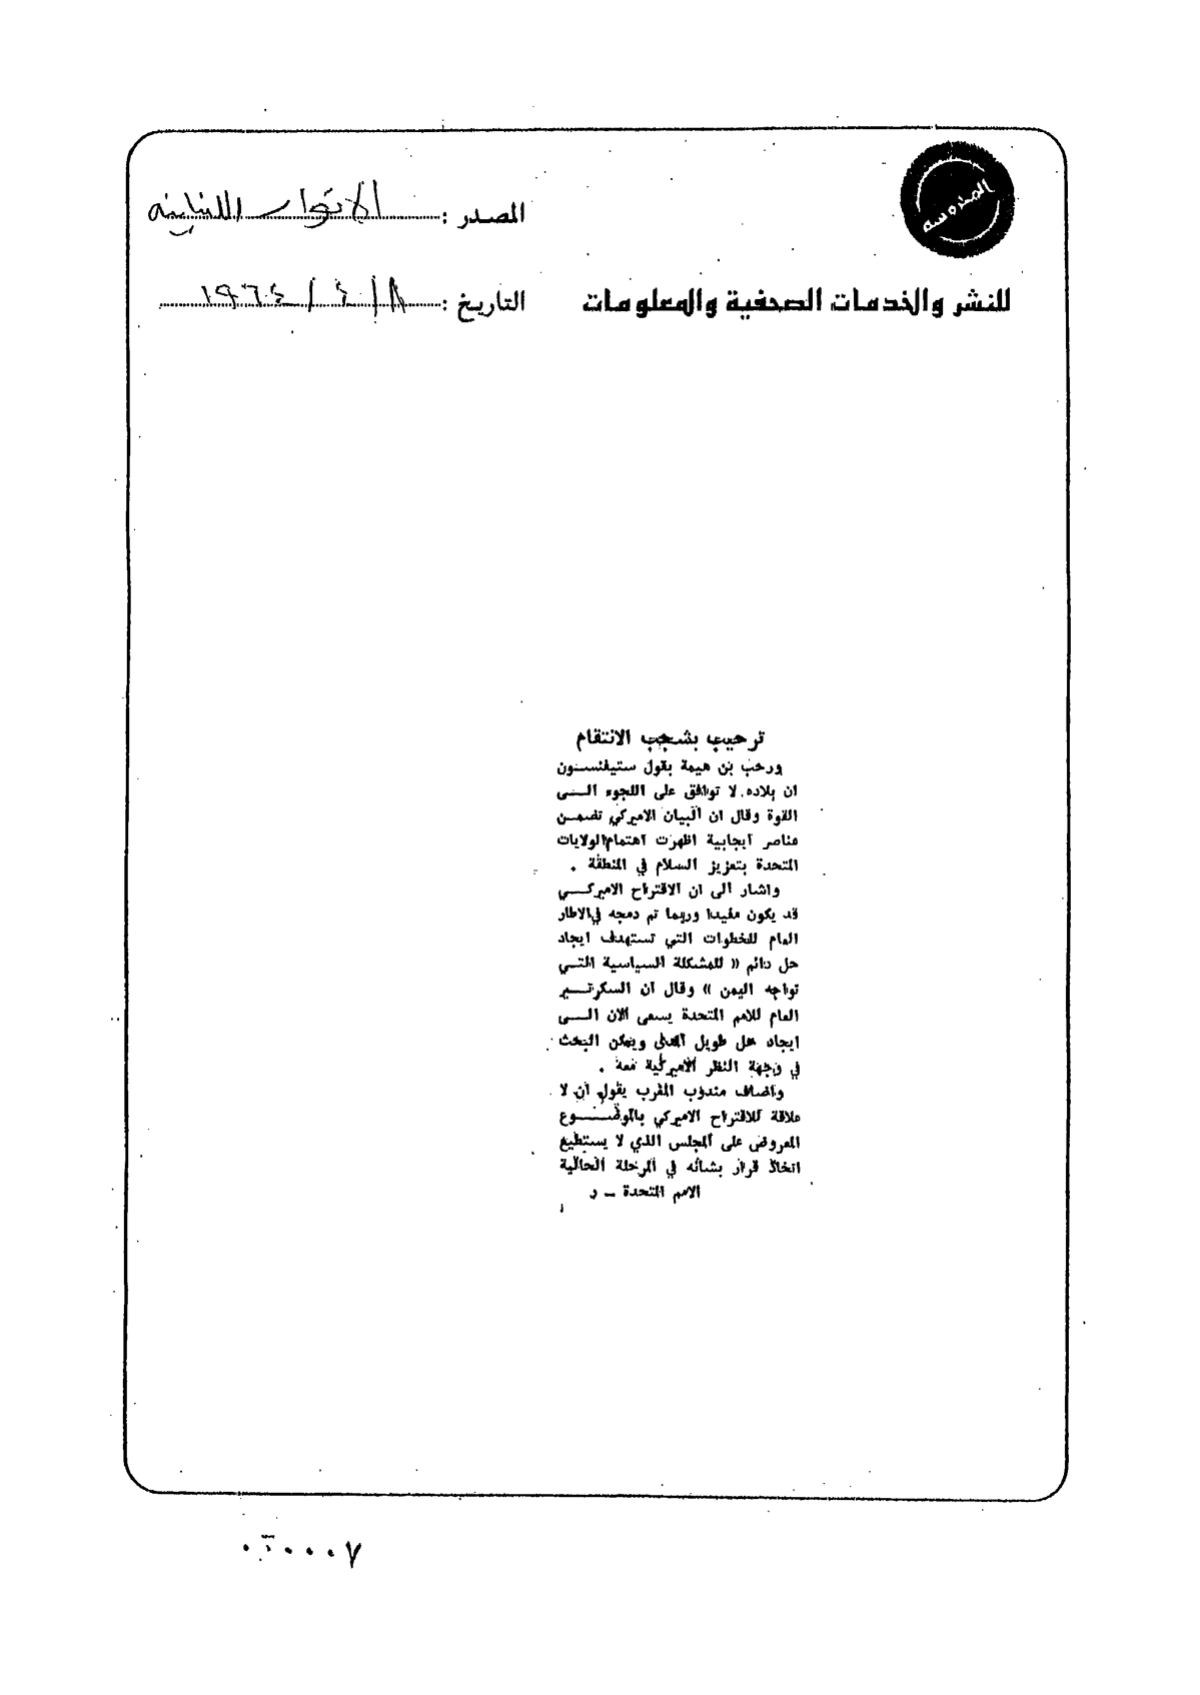 المصدر : الانوار اللبنانية
للنشر والخدمات الصحفية والمعلومات
التاريخ : ٨ / ٤ / ١٩٦٤
ترحيب بشجب الانتقام
ورحب بن هيمة بقول ستيفنسون
ان بلاده لا توافق على اللجوء الى
القوة وقال ان البيان الاميركي تضمن
عناصر ايجابية اظهرت اهتمام الولايات
المتحدة بتعزيز السلام في المنطقة .
واشار الى ان الاقتراح الاميركي
قد يكون مفيدا وربما تم دمجه في الاطار
العام للخطوات التي تستهدف ايجاد
حل دائم « للمشكلة السياسية التي
تواجه اليمن » وقال ان السكرتير
العام للامم المتحدة يسعى الان الى
ايجاد حل طويل المدى ويمكن البحث
في وجهة النظر الاميركية معه .
واضاف مندوب المغرب يقول ان لا
علاقة للاقتراح الاميركي بالموضوع
المعروض على المجلس الذي لا يستطيع
اتخاذ قرار بشأنه في المرحلة الحالية
الامم المتحدة – ر